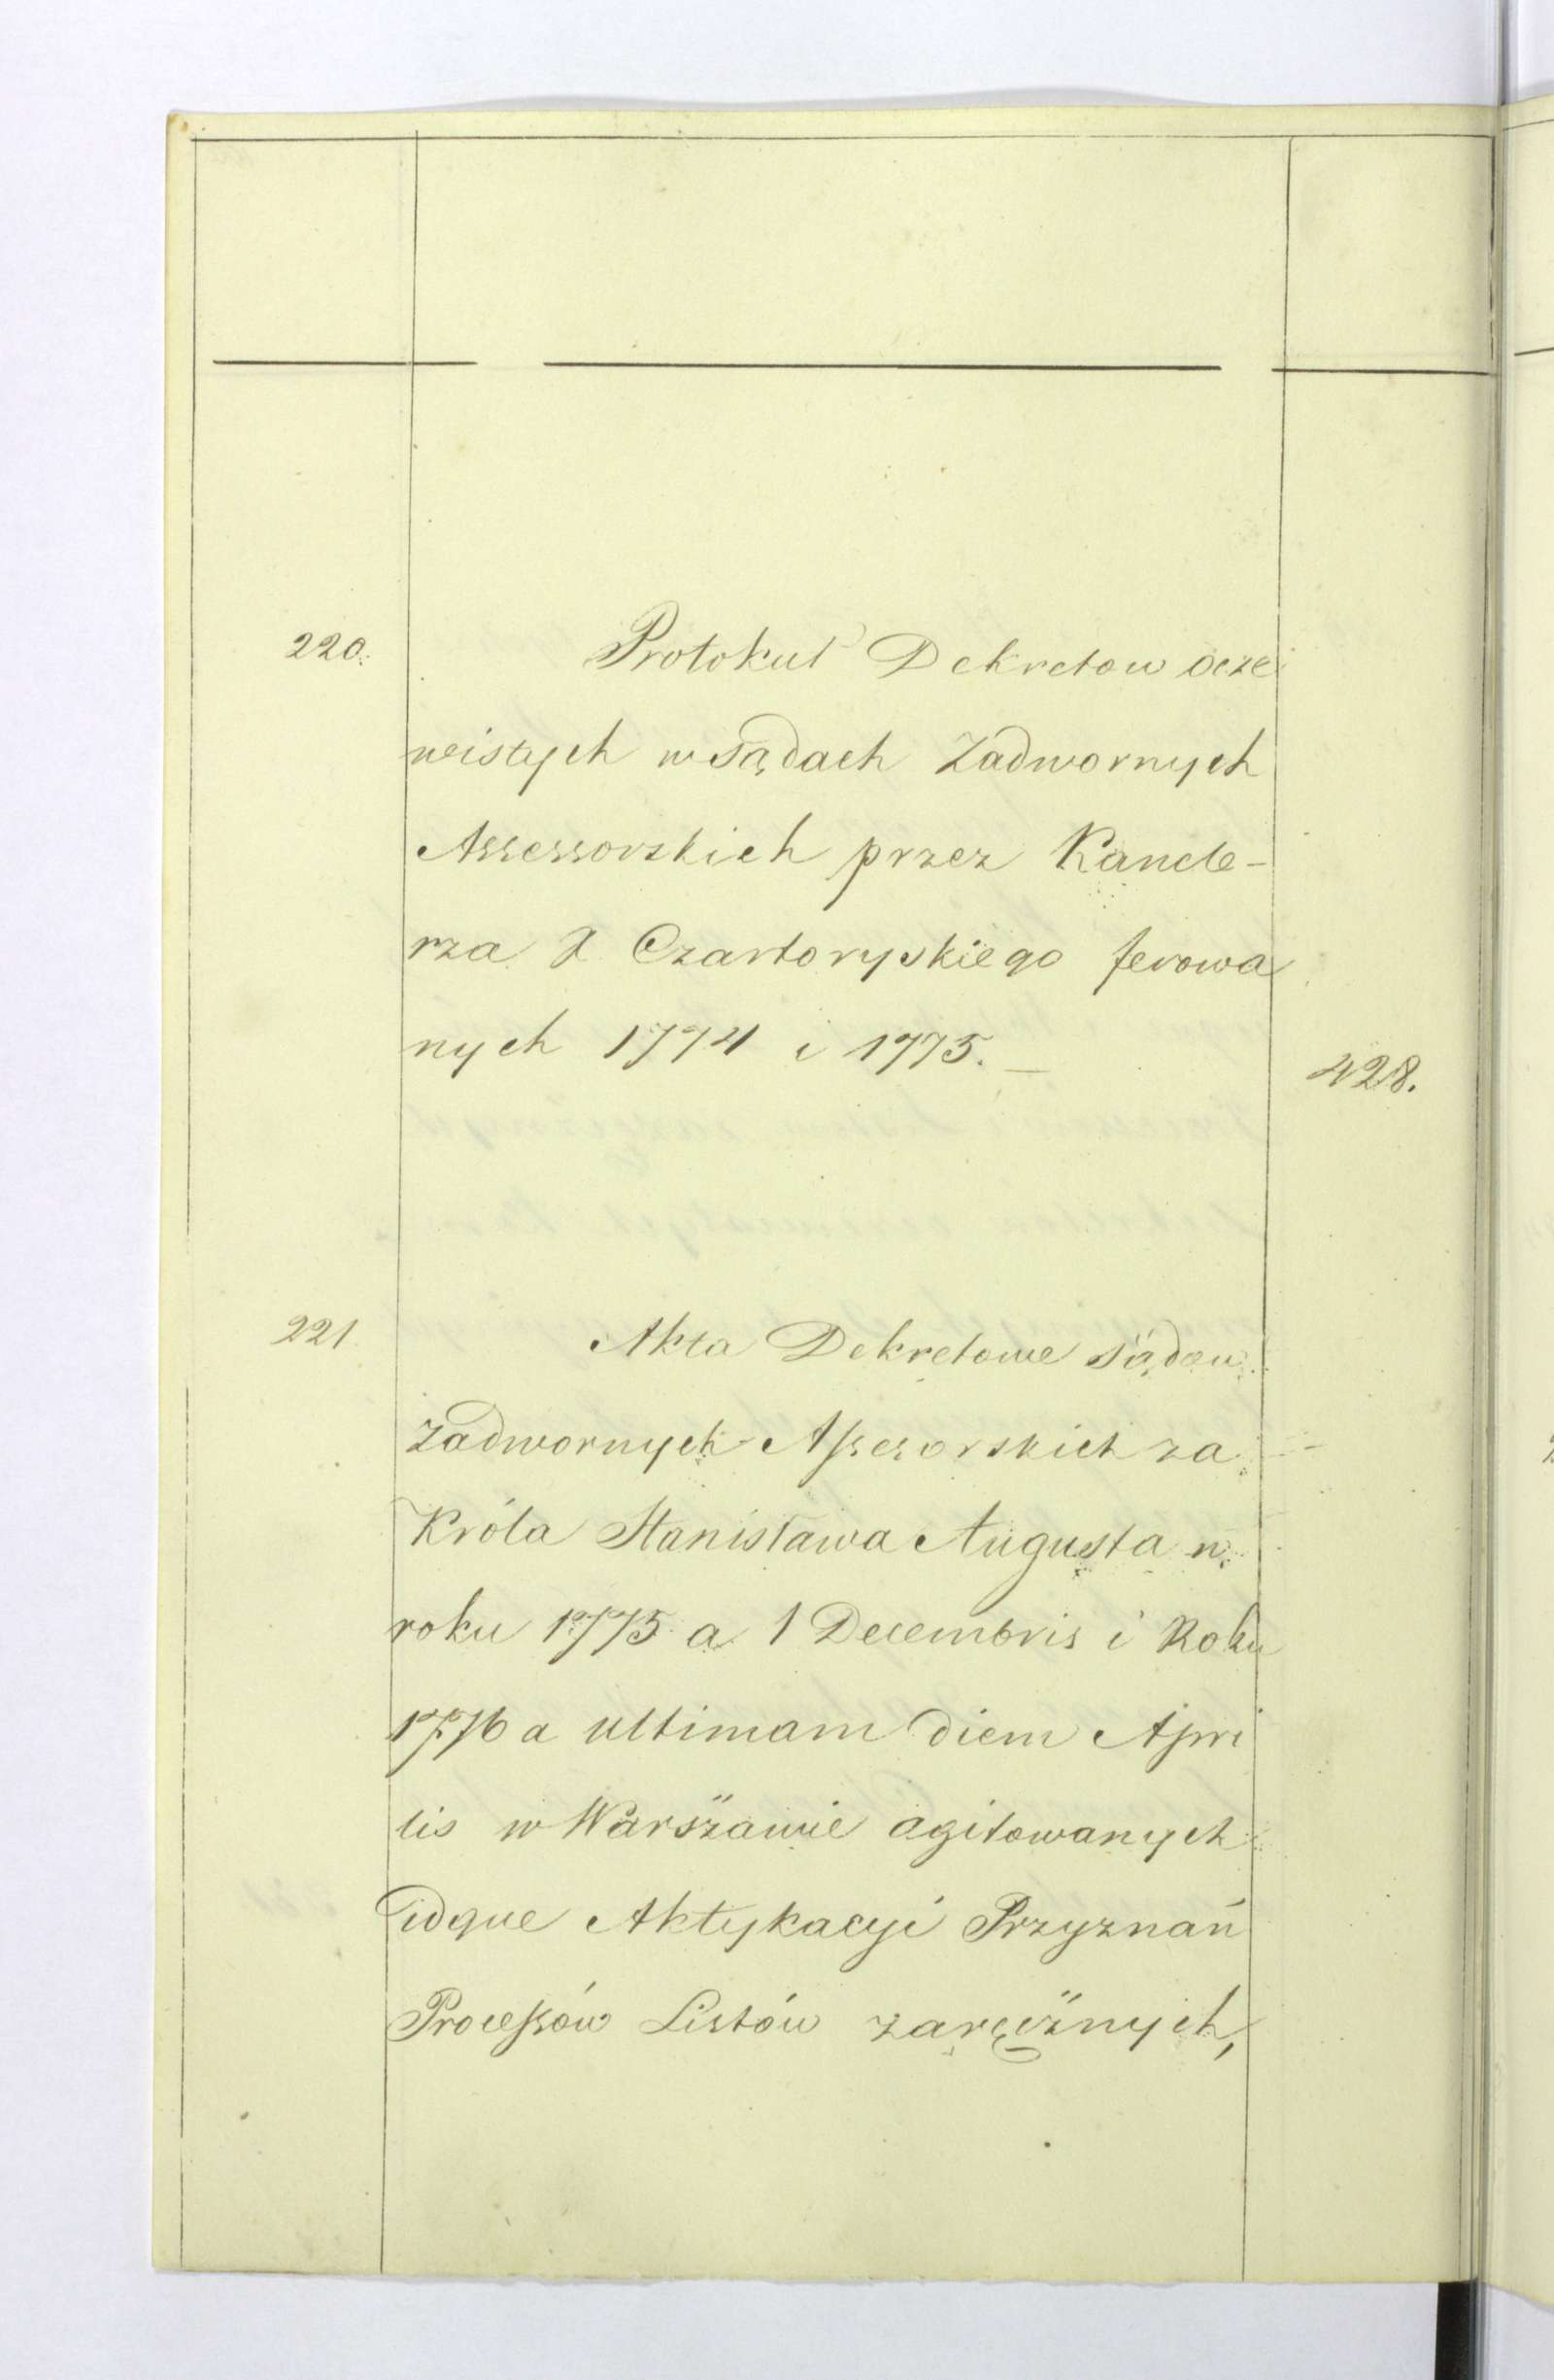 220.
Protokuł Dekretow ocze
wistych w Sądach Zadwornych
Assessorskich przez Kancle-
rza X Czartoryskiego ferowa
nych 1774 i 1775. —
428.
221
Akta Dekretowe Sądow
Zadwornych Assesorskich za
Króla Stanisława Augusta w
roku 1775 a 1 Decembris i Roku
1776 a ultimam diem Apri
lis w Warszawie agitowanych
idque Aktykacyi Przyznań
Processów Listów zaręcznych,